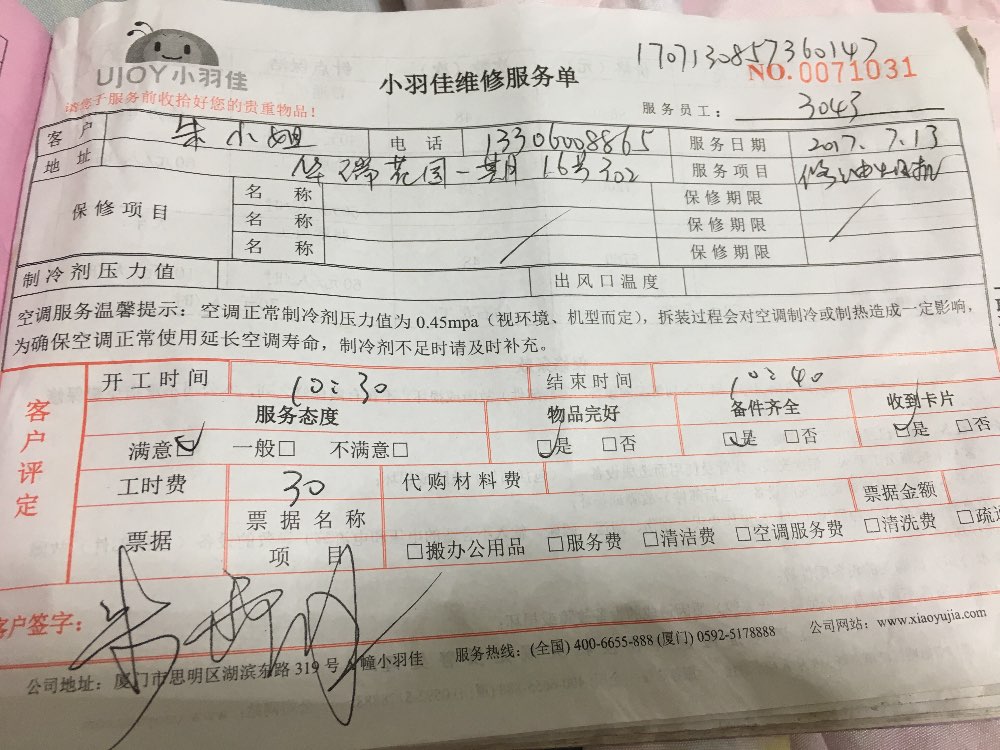 UJOY小羽佳
请您于服务前收拾好您的贵重物品！
小羽佳维修服务单
1707130857360147
NO. 0071031
服务员工： 3043
客户 朱小姐 电话 13306008865 服务日期 2017.7.13
地址 华瑞花园一期16号302 服务项目 修油烟机
保修项目 名称 保修期限
名称 保修期限
名称 保修期限
制冷剂压力值 出风口温度
空调服务温馨提示：空调正常制冷剂压力值为 0.45mpa（视环境、机型而定），拆装过程会对空调制冷或制热造成一定影响，
为确保空调正常使用延长空调寿命，制冷剂不足时请及时补充。
客户评定
开工时间 10:30 结束时间 10:40
服务态度 物品完好 备件齐全 收到卡片
满意☑ 一般□ 不满意□ ☑是 □否 ☑是 □否 ☑是 □否
工时费 30 代购材料费
票据 票据名称 票据金额
项目 □搬办公用品 □服务费 □清洁费 □空调服务费 □清洗费 □疏通
客户签字：
公司地址：厦门市思明区湖滨东路 319 号 A 幢小羽佳 服务热线：(全国) 400-6655-888 (厦门) 0592-5178888 公司网站：www.xiaoyujia.com